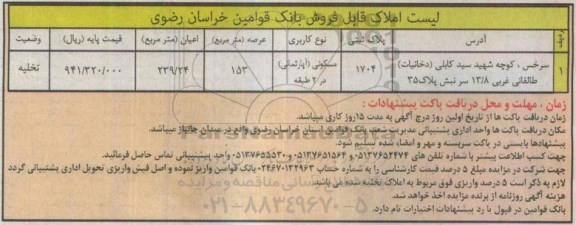 لیست املاک قابل فروش بانک قوامین خراسان رضوی
ردیف آدرس پلاک ثبتی نوع کاربری عرصه (متر مربع) اعیان (متر مربع) قیمت پایه (ریال) وضعیت
۱ سرخس ، کوچه شهید سید کابلی (دخانیات) طالقانی غربی ۱۳/۸ سر نبش پلاک ۳۵ ۱۷۰۴ مسکونی (آپارتمانی) در ۲ طبقه ۱۵۳ ۲۳۹/۲۴ ۹۴۱/۳۲۰/۰۰۰ تخلیه
زمان ، مهلت و محل دریافت پاکت پیشنهادات :
زمان دریافت پاکت ها از تاریخ اولین روز درج آگهی به مدت ۱۵ روز کاری میباشد.
مکان دریافت پاکت ها واحد اداری پشتیبانی مدیریت شعب بانک قوامین استان خراسان رضوی واقع در میدان جانباز میباشد.
پیشنهادها بایستی در پاکت سربسته و مهر و امضاء شده تسلیم شود.
جهت کسب اطلاعات بیشتر با شماره تلفن های ۰۵۱۳۷۶۵۴۴۷۴ و ۰۵۱۳۷۶۵۱۵۶۴ و ۰۵۱۳۷۶۵۵۵۳۰ واحد پشتیبانی تماس حاصل فرمائید.
جهت شرکت در مزایده مبلغ ۵ درصد قیمت کارشناسی را به شماره حساب بانک قوامین واریز نموده و اصل فیش واریزی تحویل اداری پشتیبانی گردد
لازم به ذکر است ۵ درصد واریزی فوق مربوط به املاک تخلیه شده می باشد.
هزینه آگهی روزنامه از برنده مزایده اخذ خواهد شد.
بانک قوامین در قبول یا رد پیشنهادات اختیارات تام دارد.
۰۲۱-۸۸۳۴۹۶۷۰-۵